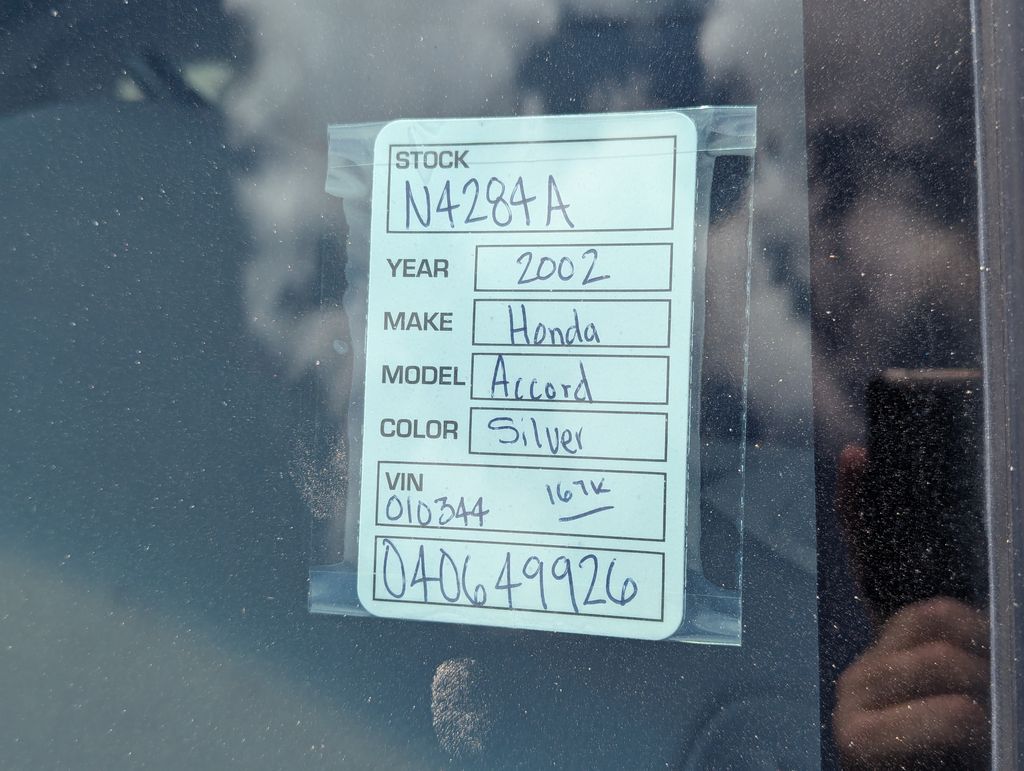 STOCK
N4284A
YEAR 2002
MAKE Honda
MODEL Accord
COLOR Silver
VIN
010344 167K
040649926